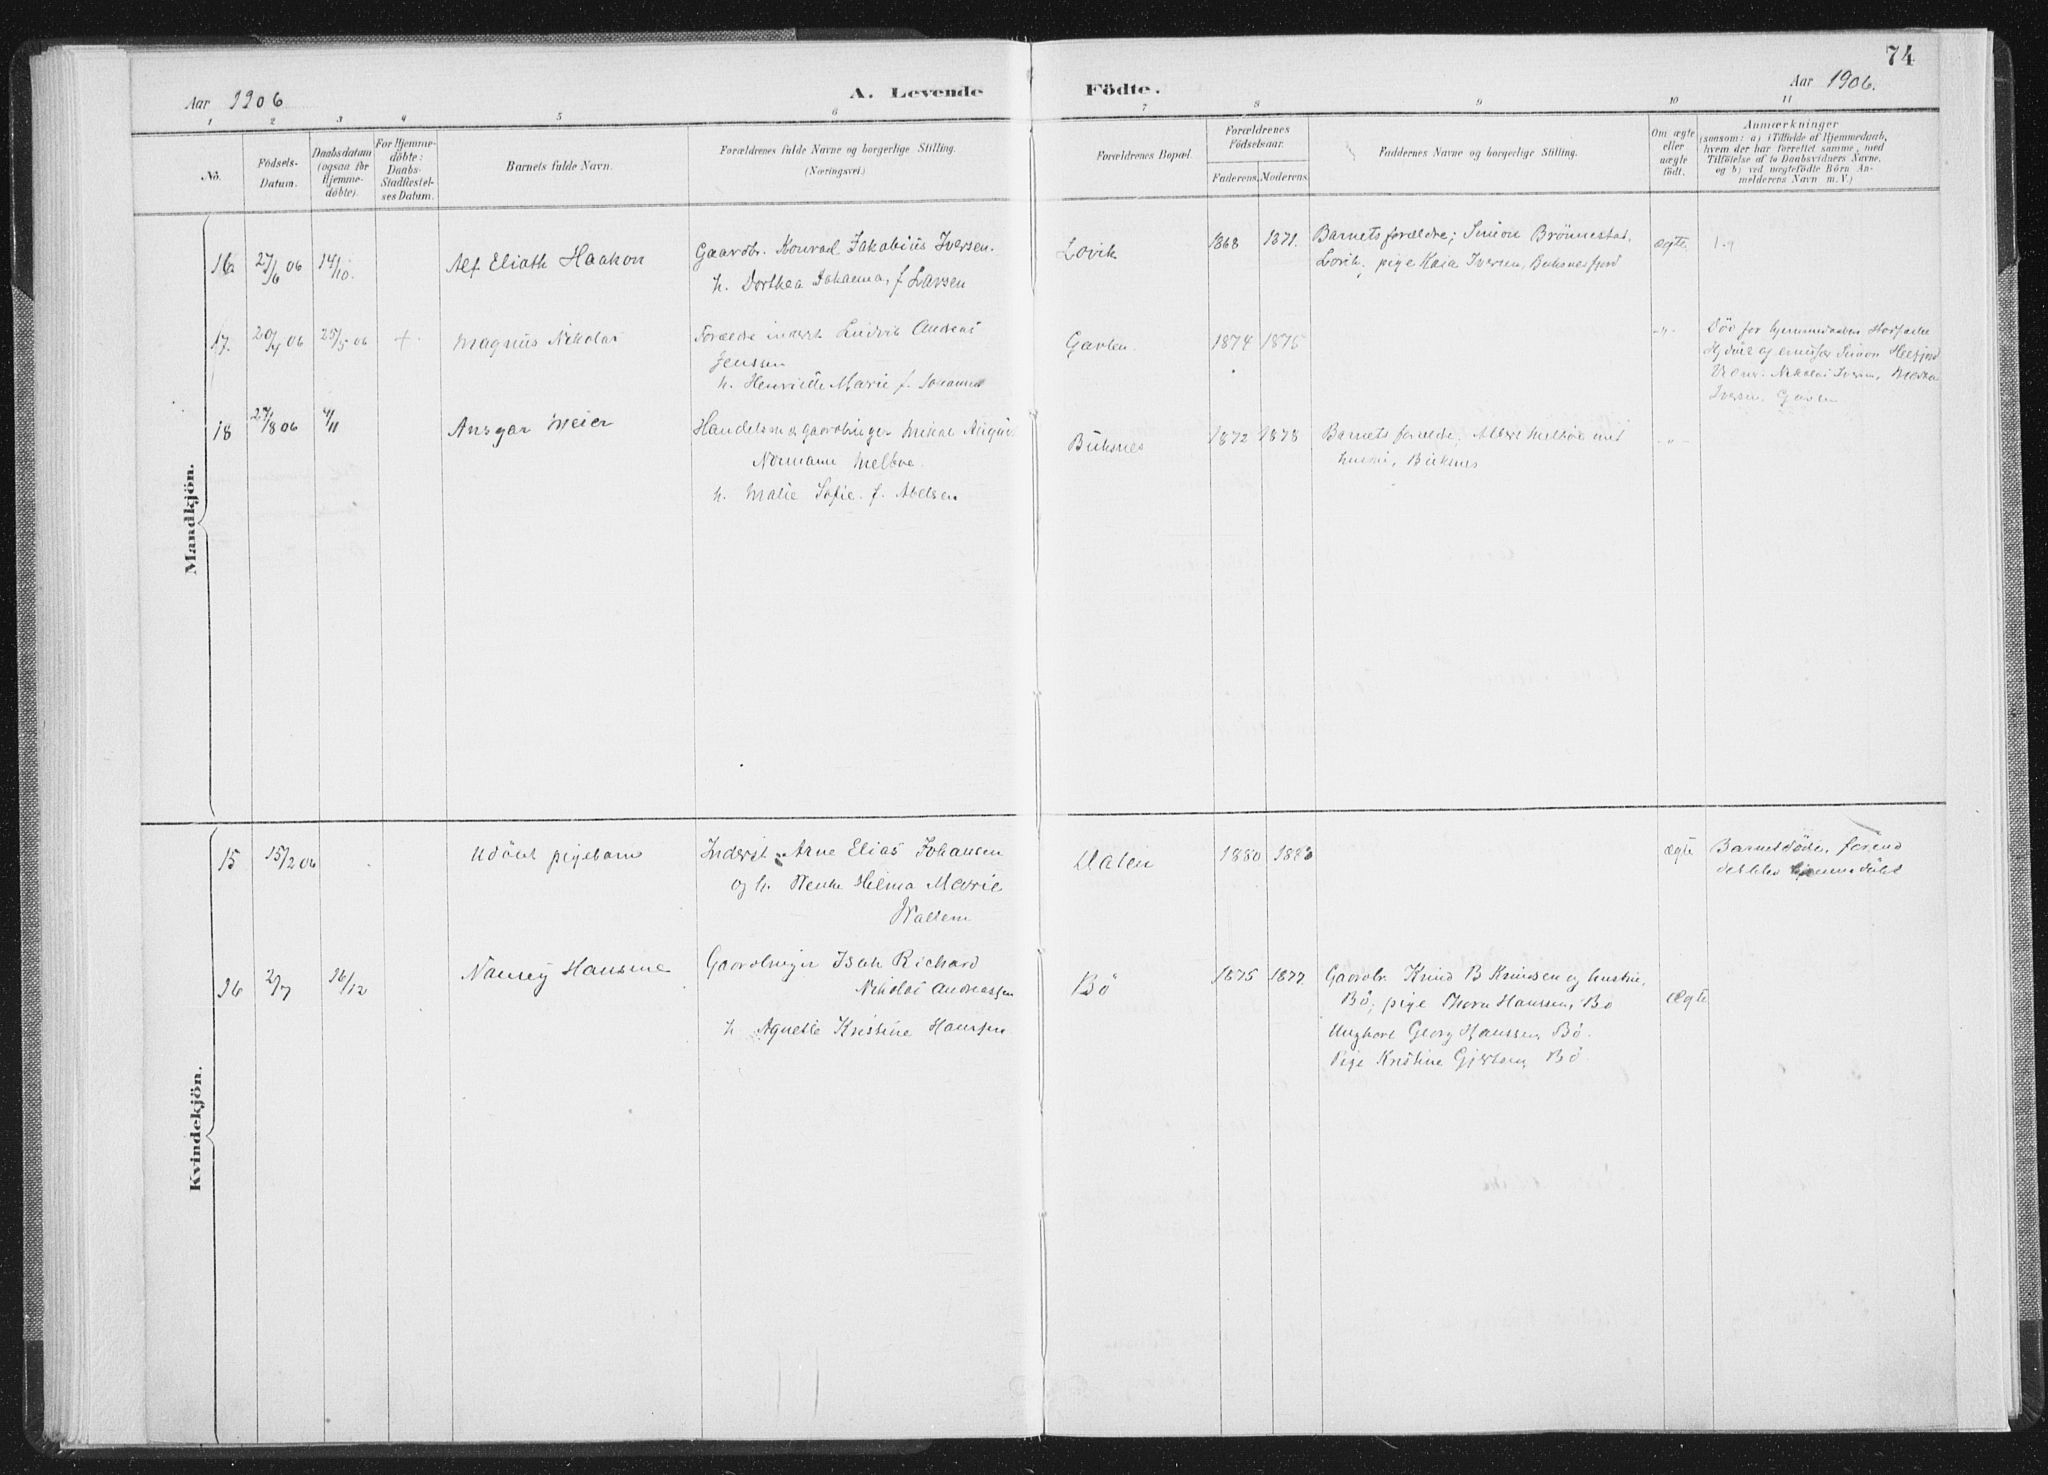 74
Aar 1906
A. Levende
Födte.
Aar 1906.
1 2 3 4 5 6 7 8 9 10 11
No.
Födsels-
Datum.
Daabsdatum
(ogsaa for
Hjemme-
döbte).
For Hjemme-
döbte:
Daabs-
Stadfæstel-
ses Datum.
Barnets fulde Navn.
Forældrenes fulde Navne og borgerlige Stilling.
(Næringsvei.)
Forældrenes Bopæl.
Forældrenes
Födselsaar.
Faderens. Moderens.
Faddernes Navne og borgerlige Stilling.
Om ægte
eller
uægte
födt.
Anmærkninger
(saasom: a) i Tilfælde af Hjemmedaab,
hvem der har forrettet samme, med
Tilföielse af to Daabsvidners Navne,
og b) ved uægtefödte Börn An-
melderens Navn m. V.)
Mandkjön.
16 27/6 06 14/10. Alf Eliath Haakon
Gaardbr. Konrad Jakobius Iversen.
h. Dorthea Johanna, f. Larsen
Lovik 1868 1871.
Barnets forældre; Simon Brönnestad,
Lovik, pige Kaia Iversen, Buksnesfjord
ægte.
17. 20/4 06 25/5 06 + Magnus Nikolai
Forældre inderst Ludvik Andreas
Jenssen
h. Henriette Marie f. Johansen
Gavlen. 1874 1875
-"-
Död før hjemmedaaben
Nikolai Iversen,
Iversen, Gavlen
18 27/8 06 4/11 Ansgar Meier
Handelsm & gaardbruger Mikal August
Normann Melbøe.
h. Malie Sofie. f. Abelsen
Buksnes 1872 1878
Barnets forældre, Albert Melböe med
hustru, Buksnes
-"-
Kvindekjön.
15 15/2 06 Udöbt pigebarn
Inderst Arne Elias Johansen
og h. Hilma Marie
Wallem
Dalen 1880 1883
ægte
Barnet döde, forend
det blev hjemmedöbt
16 2/7 16/12 Nancy Hansine
Gaardbruger Isak Richard
Nikolai Andreassen
h Agnette Kristine Hanssen
Bö 1875 1877.
Gaardbr. Knud B Knudsen og hustru,
Bö, pige Thora Hanssen, Bö
Ungkarl Georg Hanssen, Bö.
Pige Kristine Gjertsen, Bö
Ægte